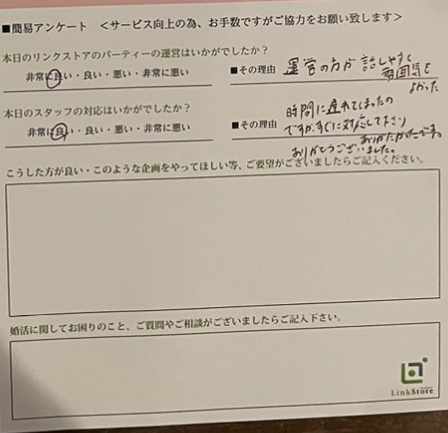 ■簡易アンケート　＜サービス向上の為、お手数ですがご協力をお願い致します＞
本日のリンクストアのパーティーの運営はいかがでしたか？
非常に良い・良い・悪い・非常に悪い
■その理由 運営の方が話しやすく
雰囲気も
よかった
本日のスタッフの対応はいかがでしたか？
非常に良い・良い・悪い・非常に悪い
■その理由 時間に遅れてしまったの
ですが、すぐに対応して下さり
ありがたかったです。
ありがとうございました。
こうした方が良い・このような企画をやってほしい等、ご要望がございましたらご記入ください。
婚活に関してお困りのこと、ご質問やご相談がございましたらご記入下さい。
LinkStore